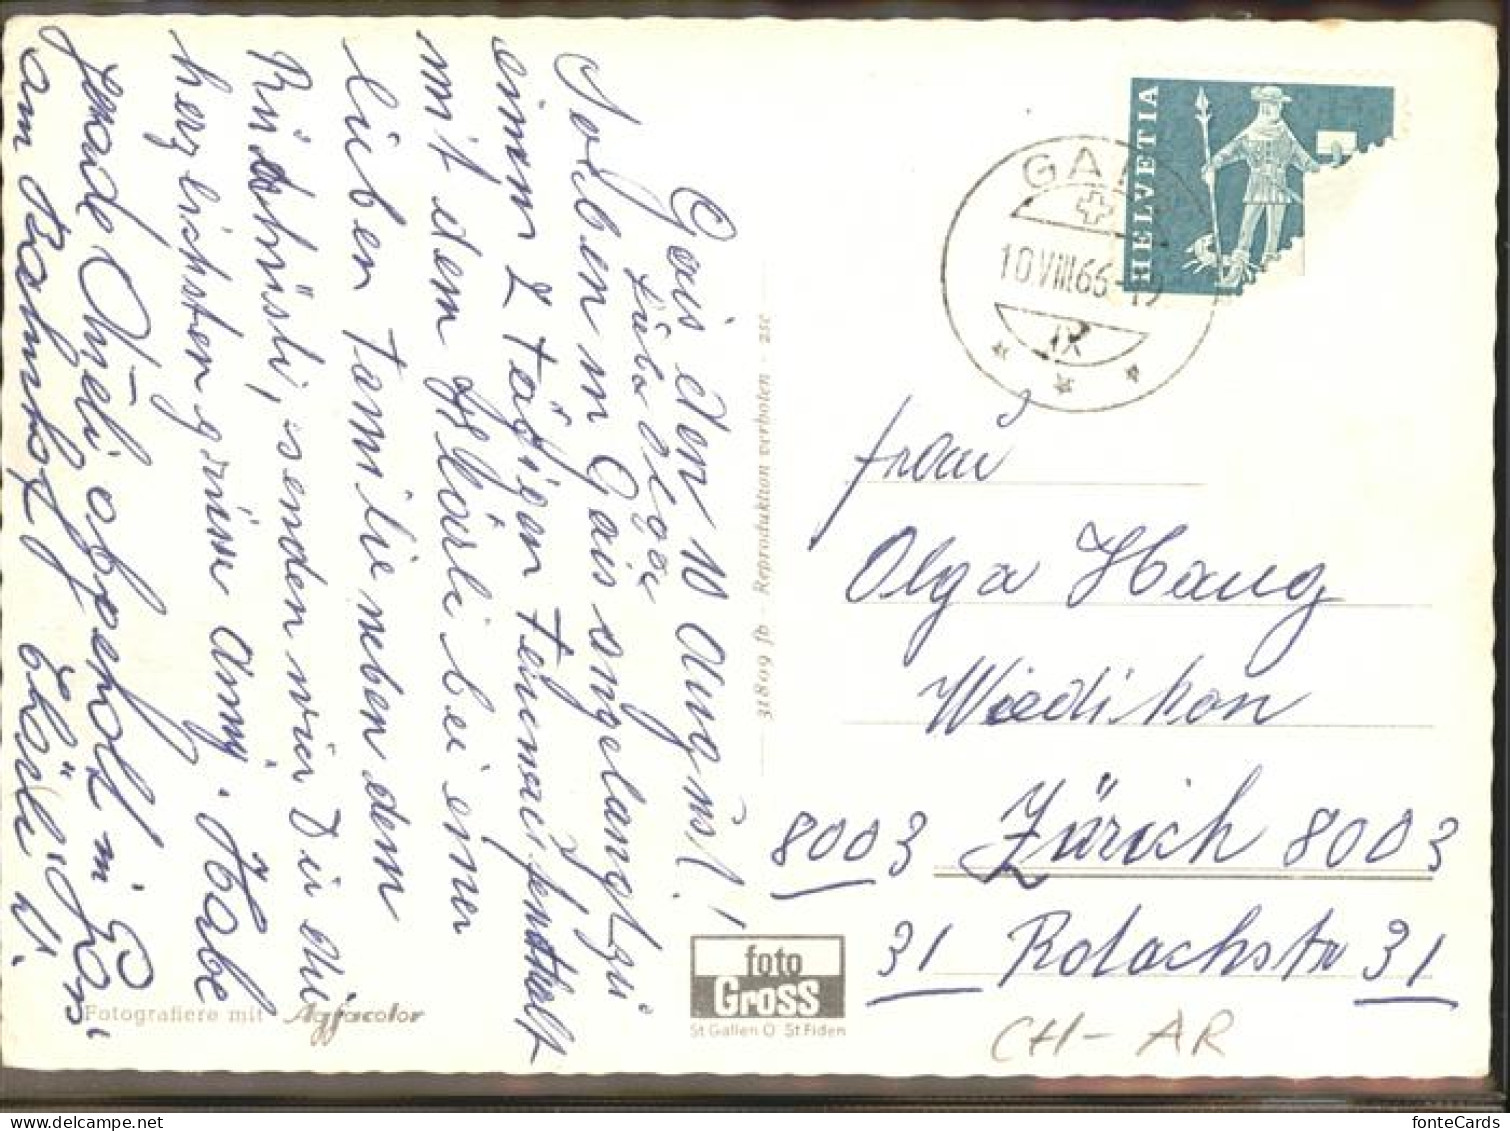 Gais den 10 August!
Liebe Olga
Soeben in Gais angelangt zu
einem 2 tägigen Ferienaufenthalt
mit dem Marli bei einer
lieben Familie neben dem
senden wir Dir die
herzlichsten grüsse Anny. Habe
gerade Ameli abgeholt in
am Bahnhof
Fotografiere mit Agfacolor
31809 fb - Reproduktion verboten - 25c
foto
Gross
St Gallen O St Fiden
HELVETIA
GAIS
10.VIII.66-19
Frau
Olga Haug
Wiedikon
8003 Zürich 8003
31 Rotachstr 31
CH-AR
fonteCards